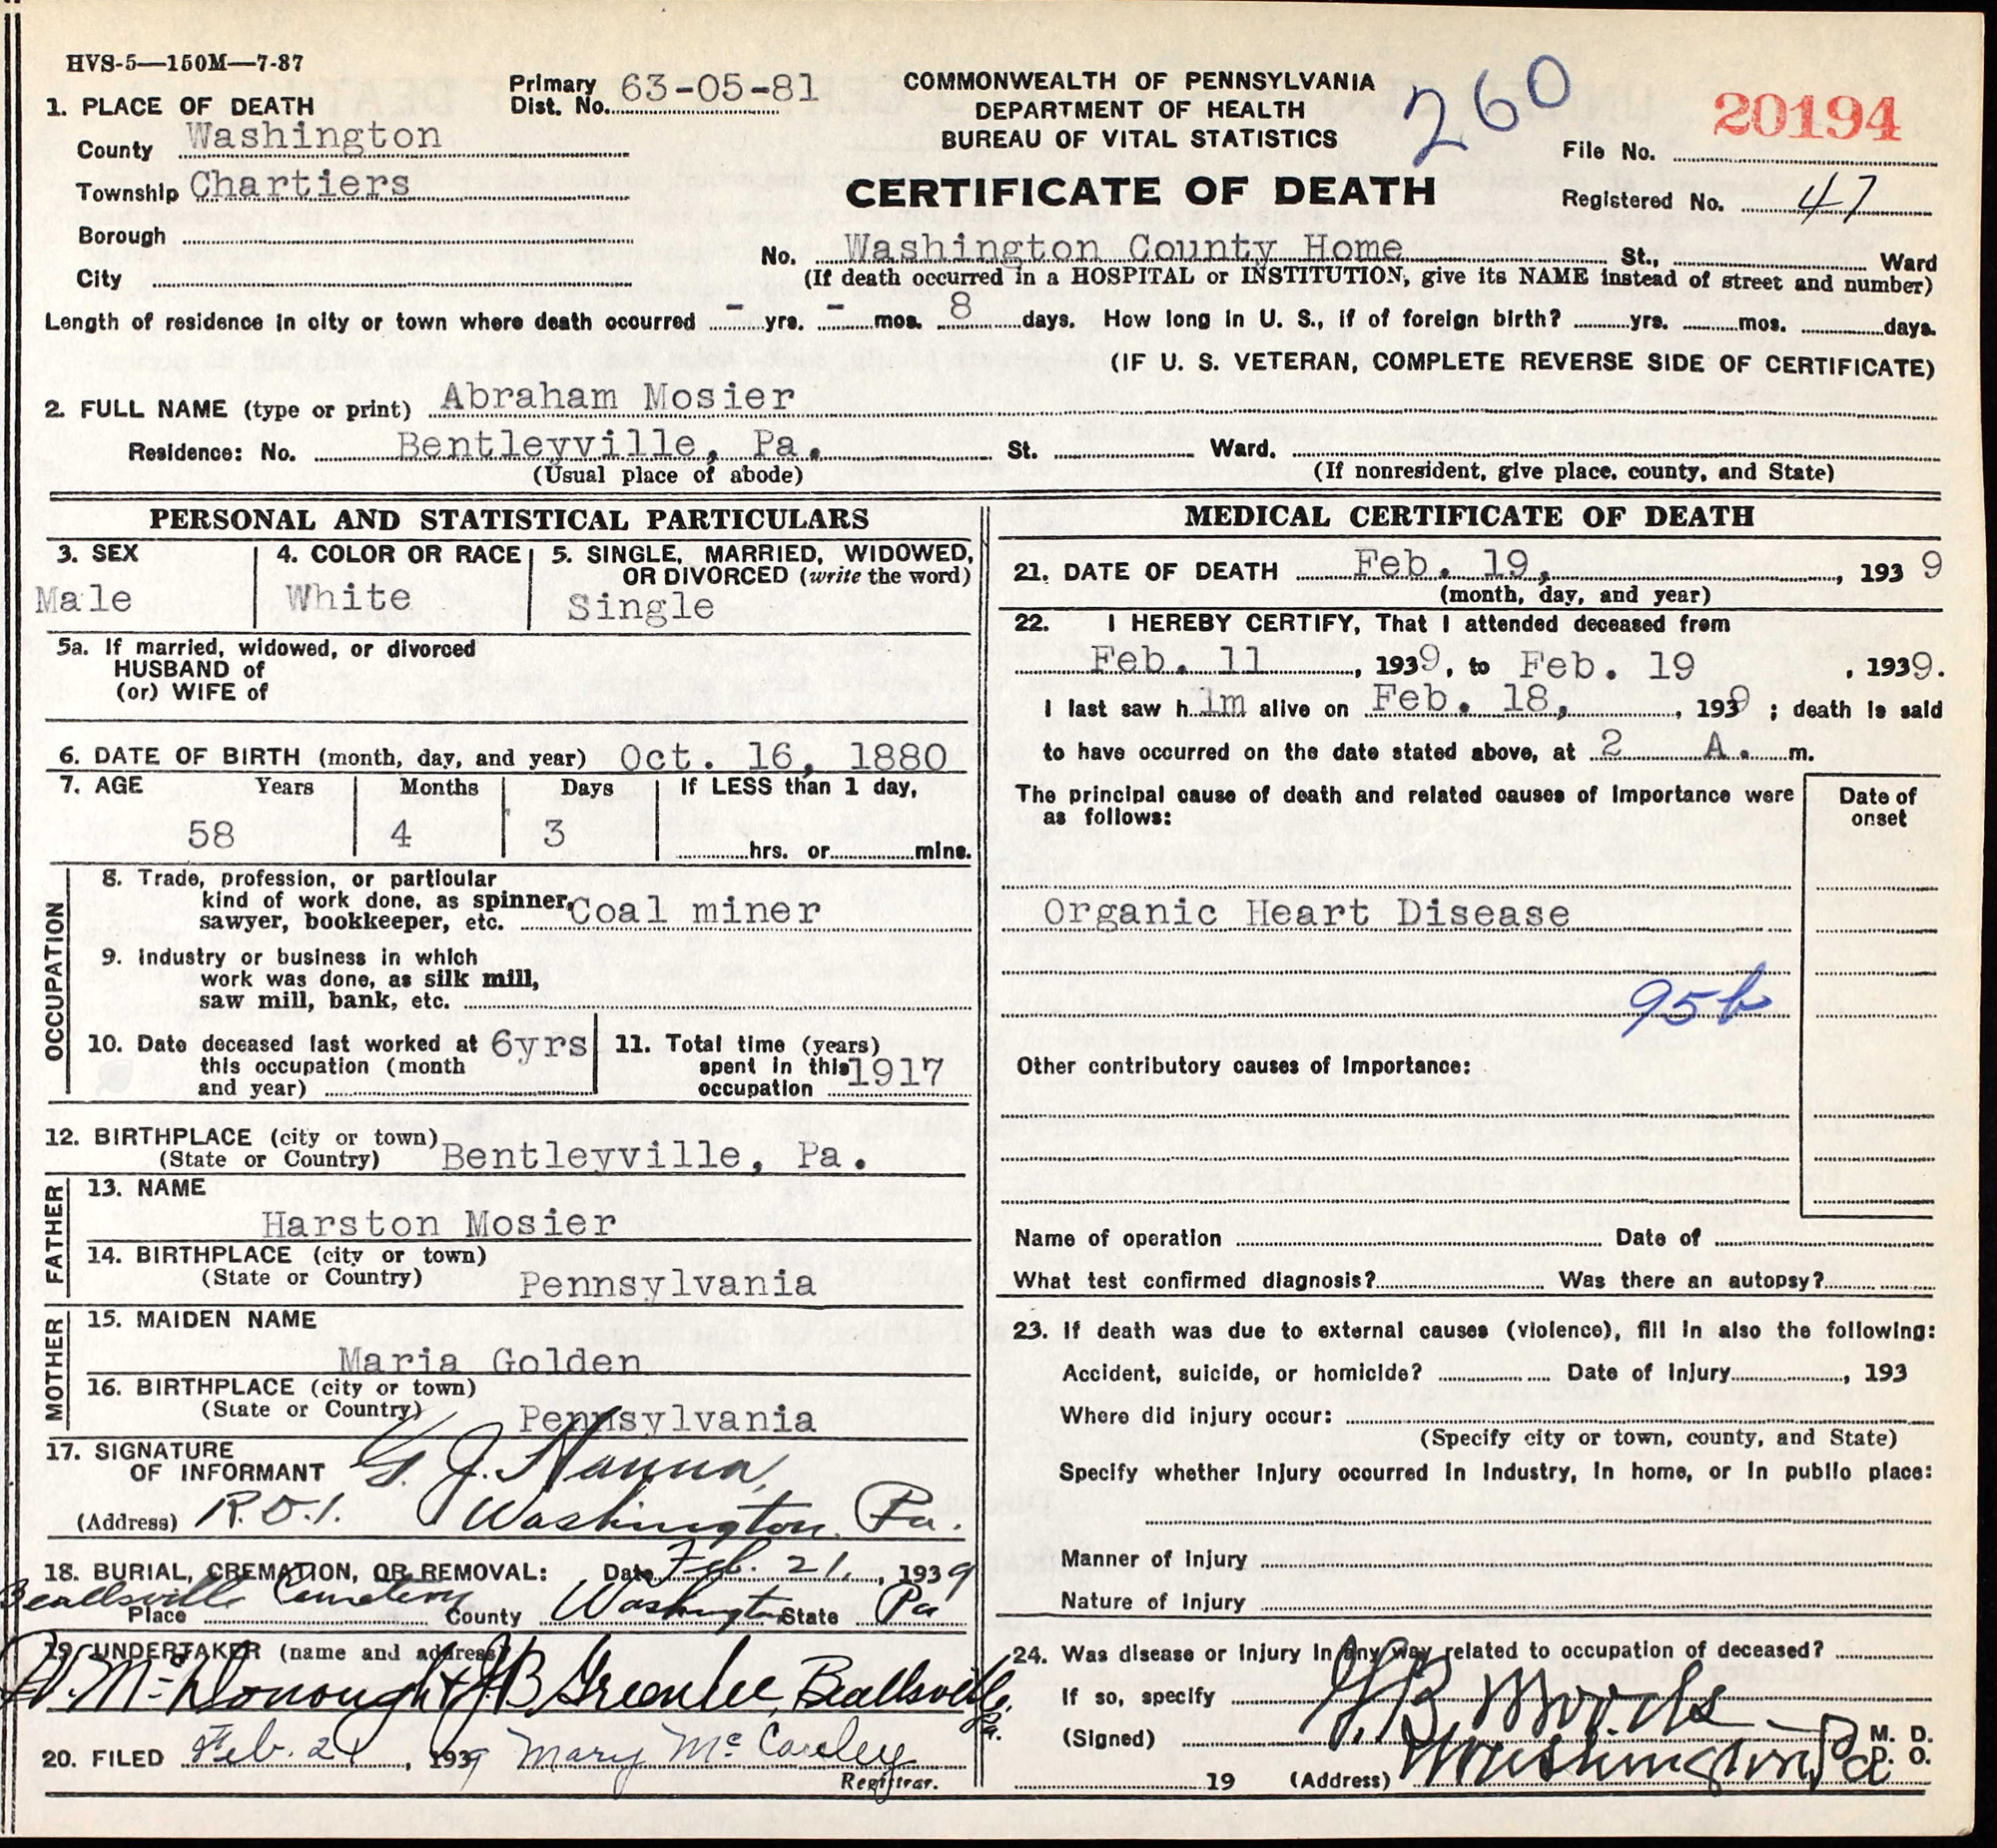 HVS-5—150M—7-37
Primary Dist. No. 63-05-81
COMMONWEALTH OF PENNSYLVANIA
DEPARTMENT OF HEALTH
BUREAU OF VITAL STATISTICS
260
20194
File No.
CERTIFICATE OF DEATH
Registered No. 47
1. PLACE OF DEATH
County Washington
Township Chartiers
Borough
City
No. Washington County Home St., Ward
(If death occurred in a HOSPITAL or INSTITUTION, give its NAME instead of street and number)
Length of residence in city or town where death occurred - yrs. - mos. 8 days. How long in U. S., if of foreign birth? yrs. mos. days.
(IF U. S. VETERAN, COMPLETE REVERSE SIDE OF CERTIFICATE)
2. FULL NAME (type or print) Abraham Mosier
Residence: No. Bentleyville, Pa. St. Ward.
(Usual place of abode) (If nonresident, give place, county, and State)
PERSONAL AND STATISTICAL PARTICULARS
3. SEX
Male
4. COLOR OR RACE
White
5. SINGLE, MARRIED, WIDOWED,
OR DIVORCED (write the word)
Single
5a. If married, widowed, or divorced
HUSBAND of
(or) WIFE of
6. DATE OF BIRTH (month, day, and year) Oct. 16, 1880
7. AGE Years Months Days If LESS than 1 day,
58 4 3 hrs. or mins.
OCCUPATION
8. Trade, profession, or particular
kind of work done, as spinner,
sawyer, bookkeeper, etc. Coal miner
9. Industry or business in which
work was done, as silk mill,
saw mill, bank, etc.
10. Date deceased last worked at 6yrs
this occupation (month
and year)
11. Total time (years)
spent in this 1917
occupation
12. BIRTHPLACE (city or town)
(State or Country) Bentleyville, Pa.
FATHER
13. NAME
Harston Mosier
14. BIRTHPLACE (city or town)
(State or Country) Pennsylvania
MOTHER
15. MAIDEN NAME
Maria Golden
16. BIRTHPLACE (city or town)
(State or Country) Pennsylvania
17. SIGNATURE
OF INFORMANT G. J. Hanna,
(Address) R.D.1. Washington, Pa.
18. BURIAL, CREMATION, OR REMOVAL: Date Feb. 21, 1939
Place Beallsville Cemetery County Washington State Pa
19. UNDERTAKER (name and address)
McDonough & JB Greenlee, Beallsville, Pa.
20. FILED Feb. 21, 1939 Mary McCauley
Registrar.
MEDICAL CERTIFICATE OF DEATH
21. DATE OF DEATH Feb. 19, , 1939
(month, day, and year)
22. I HEREBY CERTIFY, That I attended deceased from
Feb. 11 , 1939, to Feb. 19 , 1939.
I last saw him alive on Feb. 18, , 1939 ; death is said
to have occurred on the date stated above, at 2 A. m.
The principal cause of death and related causes of importance were
as follows:
Date of
onset
Organic Heart Disease
95b
Other contributory causes of importance:
Name of operation Date of
What test confirmed diagnosis? Was there an autopsy?
23. If death was due to external causes (violence), fill in also the following:
Accident, suicide, or homicide? Date of injury , 193
Where did injury occur:
(Specify city or town, county, and State)
Specify whether injury occurred in industry, in home, or in public place:
Manner of injury
Nature of injury
24. Was disease or injury in any way related to occupation of deceased?
If so, specify
(Signed) G.B. Woods M. D.
D. O.
19 (Address) Washington, Pa